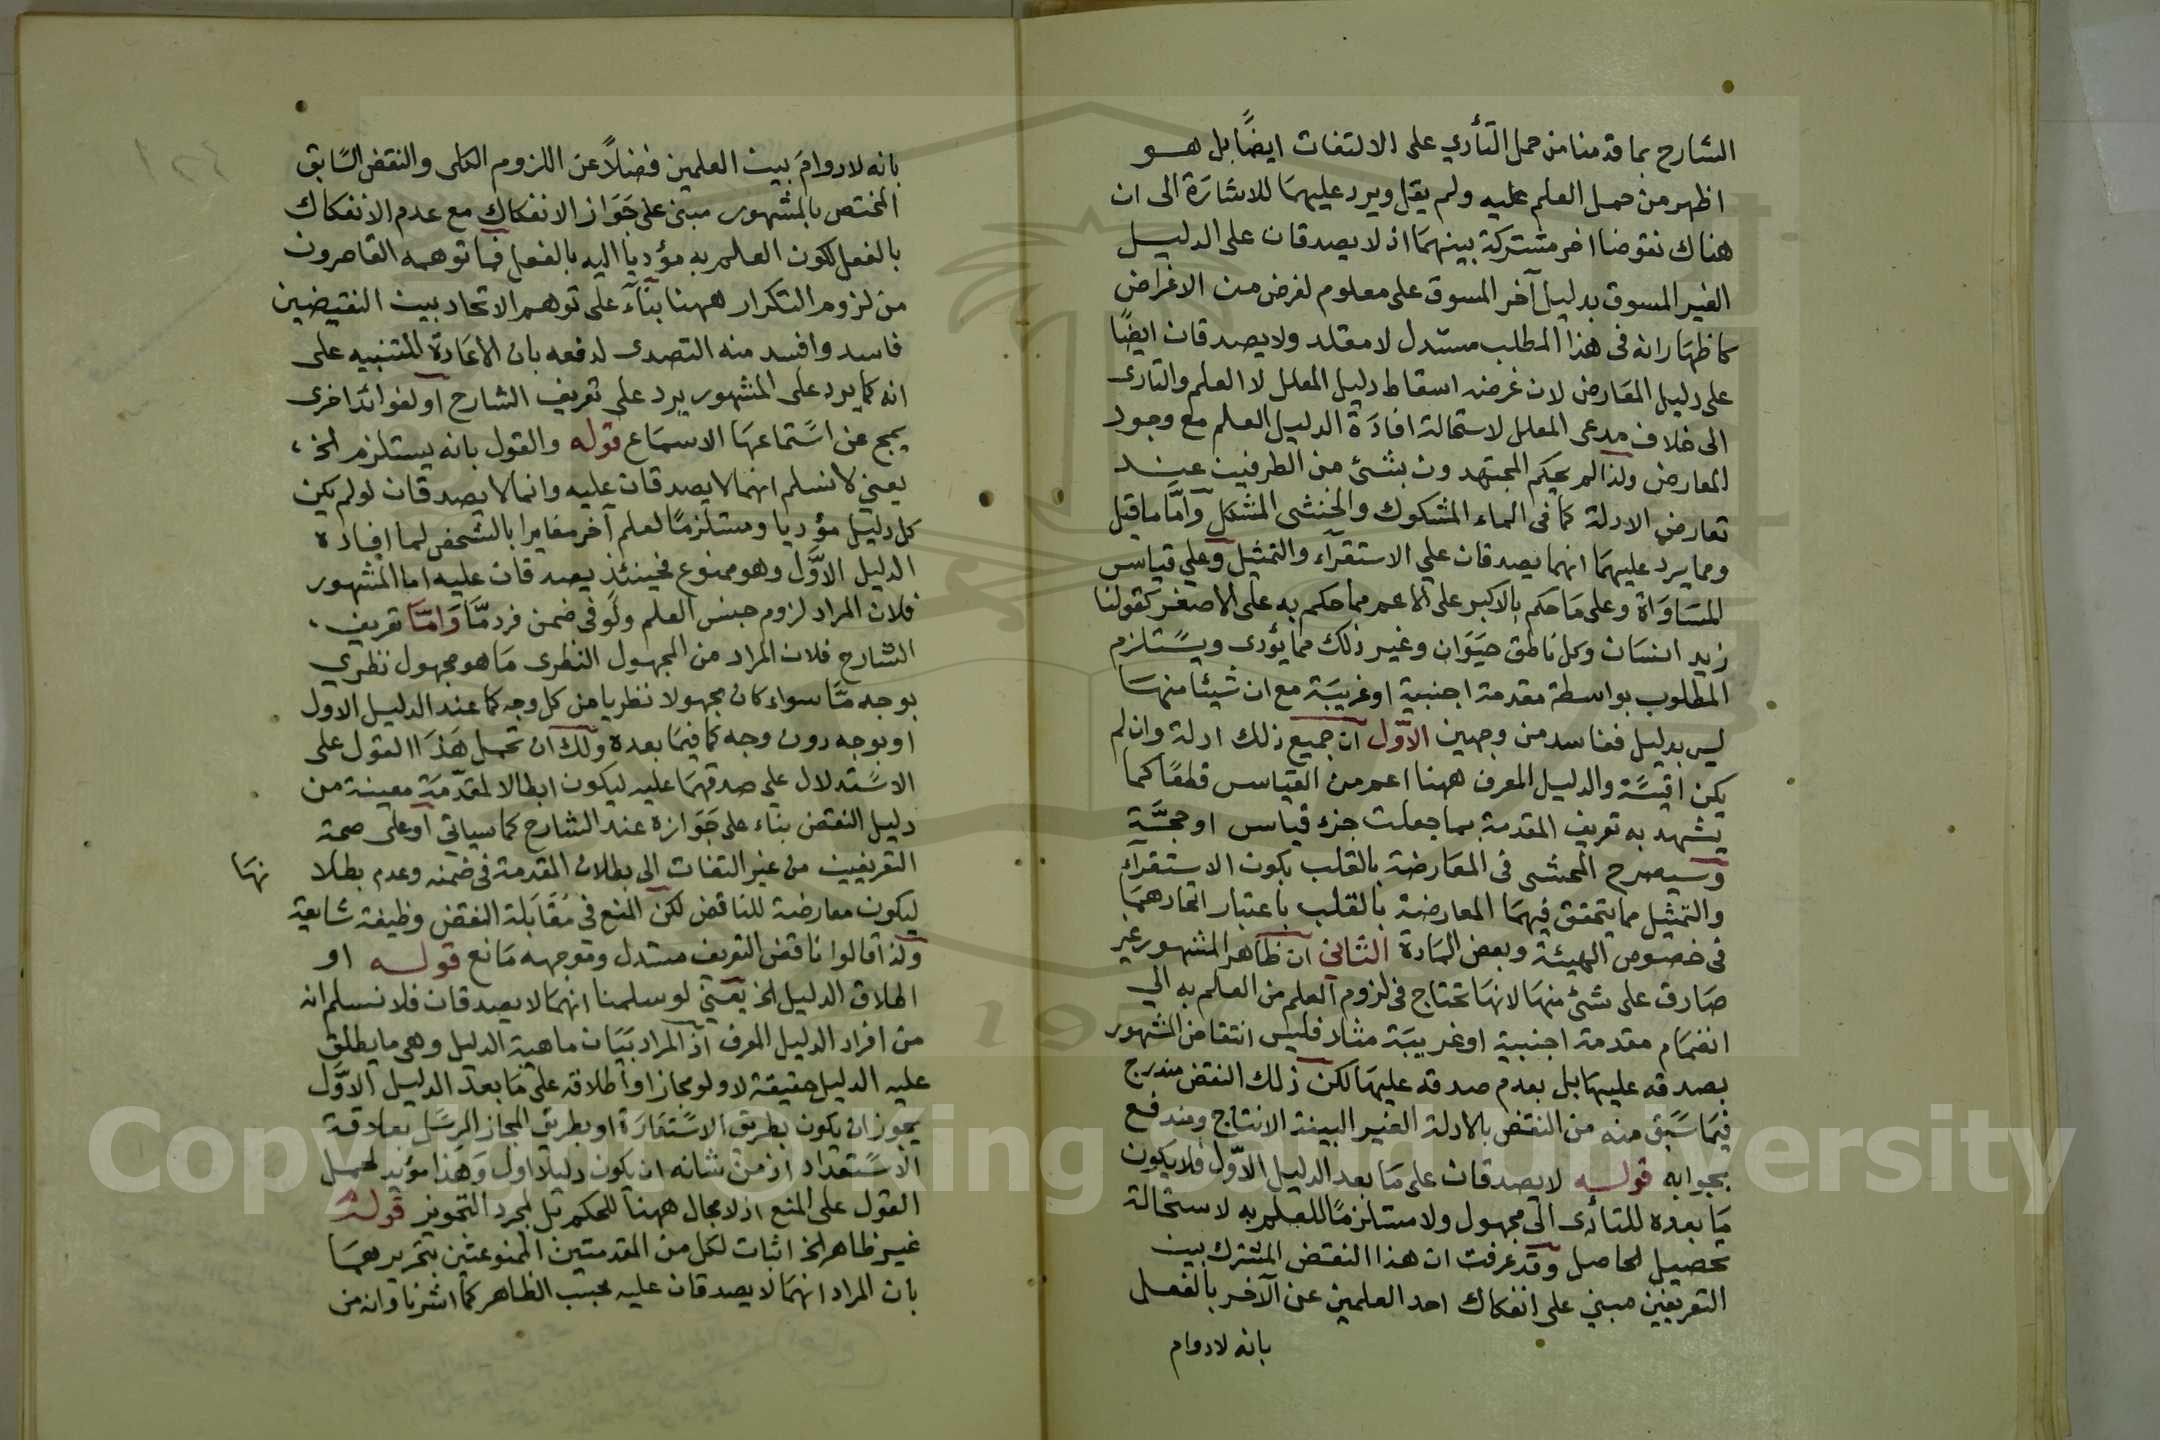 الشارح بما قدمنا من حمل التأدي على الالتفات ايضًا بل هو
اظهر من حمل العلم عليه ولم يقل ويرد عليهما للاشارة الى ان
هناك نقوضا اخر مشتركة بينهما اذ لا يصدقان على الدليل
الغير المسوق بدليل آخر المسوق على معلوم لغرض من الاغراض
كاظهار انه في هذا المطلب مستدل لا مقلد ولا يصدقان ايضًا
على دليل المعارض لان غرضه اسقاط دليل المعلل لا العلم والتادى
الى خلاف مدعى المعلل لاستحالة افادة الدليل العلم مع وجود
المعارض ولذا لم يحكم المجتهدون بشئ من الطرفين عند
تعارض الادلة كما في الماء المشكوك والخنثى المشكل وامّا ما قيل
ومما يرد عليهما انهما يصدقان على الاستقرآء والتمثيل وعلى قياس
المساواة وعلى ما حكم بالاكبر على الاعم مما حكم به على الاصغر كقولنا
زيد انسان وكل ناطق حيوان وغير ذلك مما يؤدى ويستلزم
المطلوب بواسطة مقدمة اجنبية او غريبة مع ان شيئا منها
ليس بدليل ففاسد من وجهين الاوّل ان جميع ذلك ادلة وان لم
يكن اقيسة والدليل المعرف ههنا اعم من القياس قطعًا كما
يشهد به تعريف المقدمة بما جعلت جزء قياس او حجّة
وسيصرح المحشى في المعارضة بالقلب بكون الاستقرآء
والتمثيل مما يتحقق فيهما المعارضة بالقلب باعتبار اتحادهما
في خصوص الهيئة وبعض المادة الثاني ان ظاهر المشهور غير
صادق على شئ منها لانها تحتاج في لزوم العلم من العلم به الى
انضمام مقدمة اجنبية او غريبة مثلا فليس انتقاض المشهور
بصدقه عليها بل بعدم صدقه عليها لكن ذلك النقض مندرج
فيما سبق منه من النقض بالادلة الغير البينة الانتاج ومندفع
بجوابه قوله لا يصدقان على ما بعد الدليل الاوّل فلا يكون
ما بعده للتأدى الى مجهول ولا مستلزمًا للعلم به لاستحالة
تحصيل الحاصل وقد عرفت ان هذا النقض المشترك بين
التعريفين مبني على انفكاك احد العلمين عن الآخر بالفعل
بانه لا دوام
بانه لا دوام بين العلمين فضلاً عن اللزوم الكلى والنقض السابق
المختص بالمشهور مبنى على جواز الانفكاك مع عدم الانفكاك
بالفعل لكون العلم به مؤديا اليه بالفعل فما توهمه القاصرون
من لزوم التكرار ههنا بنآء على توهم الاتحاد بين النقيضين
فاسد وافسد منه التصدى لدفعه بان الاعادة للتنبيه على
انه كما يرد على المشهور يرد على تعريف الشارح او لفوائد اخرى
يمج عن استماعها الاسماع قوله والقول بانه يستلزم الخ
يعني لا نسلم انهما لا يصدقان عليه وانما لا يصدقان لو لم يكن
كل دليل مؤديا ومستلزمًا لعلم آخر مغايرا بالشخص لما افاده
الدليل الاوّل وهو ممنوع فحينئذ يصدقان عليه اما المشهور
فلان المراد لزوم جنس العلم ولو في ضمن فرد مّا وامّا تعريف
الشارح فلان المراد من المجهول النظرى ما هو مجهول نظري
بوجه مّا سواء كان مجهولا نظريا من كل وجه كما عند الدليل الاول
او بوجه دون وجه كما فيما بعده ولك ان تحمل هذا القول على
الاستدلال على صدقهما عليه ليكون ابطالا لمقدّمة معينة من
دليل النقض بناء على جوازه عند الشارح كما سيأتي او على صحة
التعريفين من غير التفات الى بطلان المقدمة في ضمنه وعدم بطلا نها
ليكون معارضة للناقض لكن المنع في مقابلة النقض وظيفة شايعة
ولذا قالوا ناقض التعريف مستدل وموجهه مانع قوله او
اطلاق الدليل الخ يعني لو سلمنا انهما لا يصدقان فلا نسلم انه
من افراد الدليل المعرف اذ المراد بيان ماهية الدليل وهي ما يطلق
عليه الدليل حقيقة لا ولو مجازا واطلاقه على ما بعد الدليل الاوّل
يجوز ان يكون بطريق الاستعارة او بطريق المجاز المرسل بعلاقة
الاستعداد اذ من شانه ان يكون دليلا اول وهذا مؤيد لحمل
القول على المنع اذ لا مجال ههنا للحكم بل لمجرد التجويز قوله
غير ظاهر الخ اثبات لكل من المقدمتين الممنوعتين بتحريرهما
بان المراد انهما لا يصدقان عليه بحسب الظاهر كما اشرنا وانه من
Copyright © King Saud University